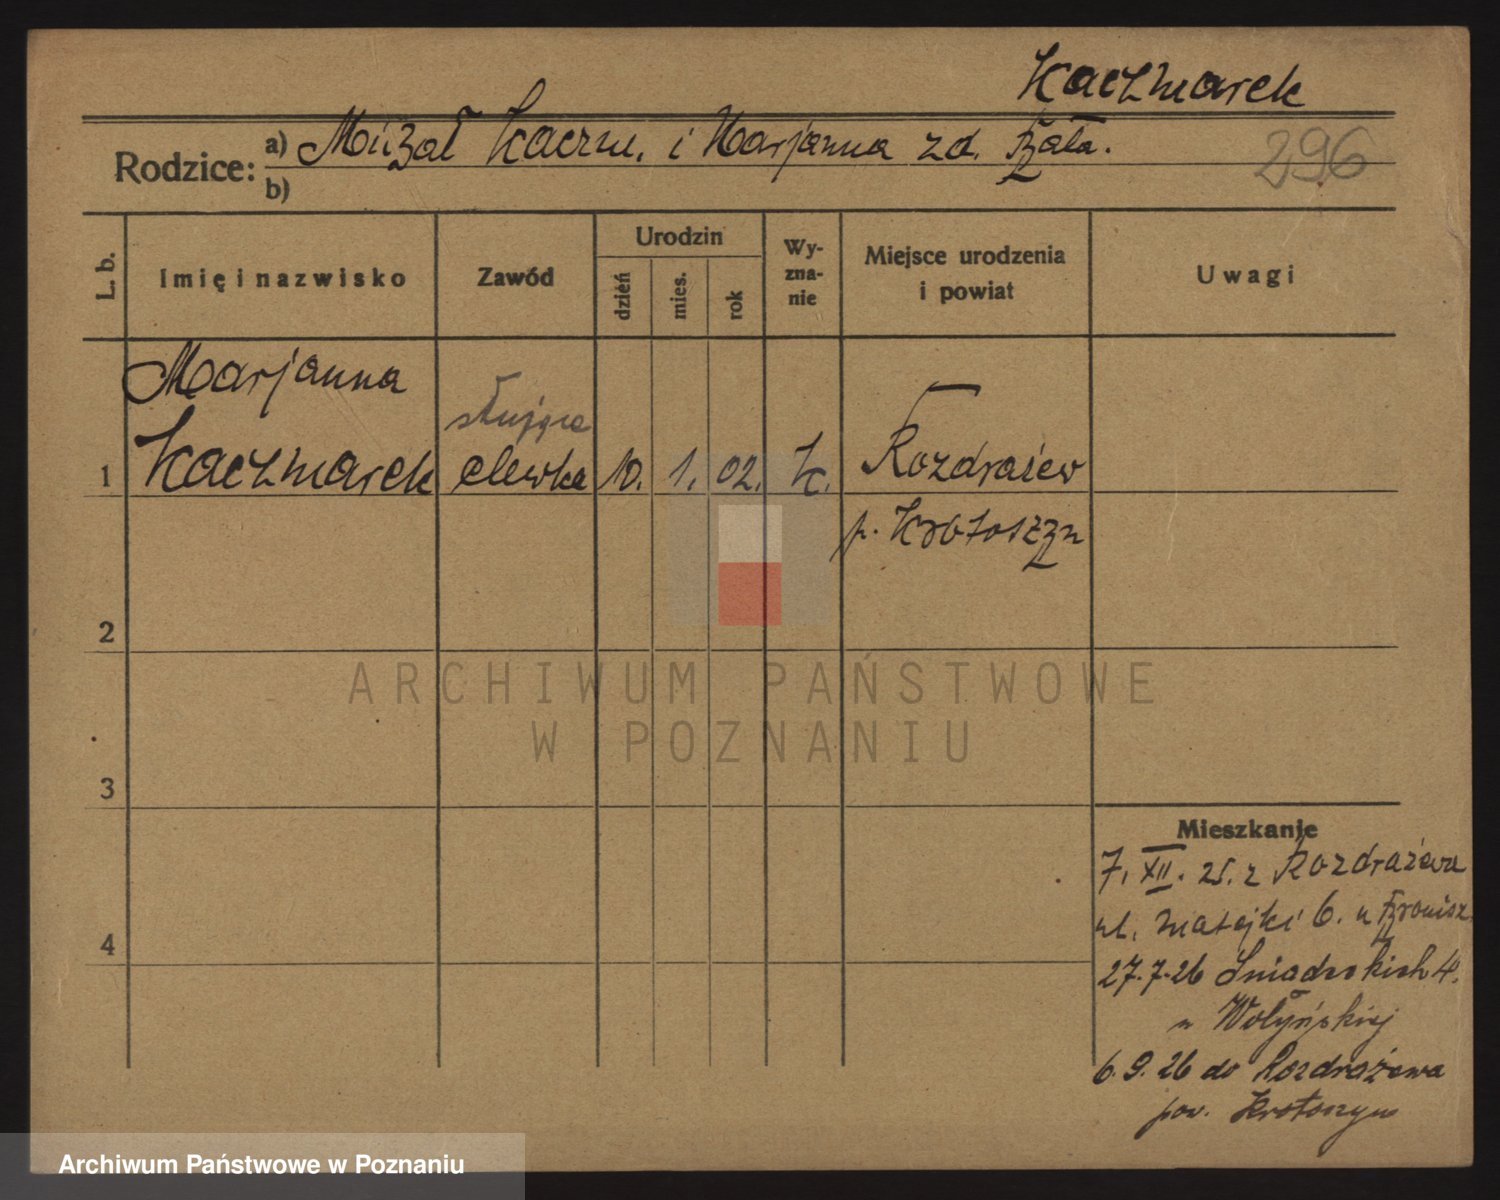 Kaczmarek
Rodzice: a) Michał Kaczm. i Marjanna zd.
b)
296
L. b.
Imię i nazwisko
Zawód
Urodzin
dzień
mies.
rok
Wy-
zna-
nie
Miejsce urodzenia
i powiat
Uwagi
Marjanna
służąca
1 Kaczmarek elewka 10. 1. 02. k. Rozdrażew
p. Krotoszyn
2
3
4
ARCHIWUM PAŃSTWOWE
W POZNANIU
Mieszkanie
7. XII. 25. z Rozdrażewa
ul. Matejki 6. u Bronisz
27.7.26 Śniadeckich 4.
u Wołyńskiej
6.9.26 do Rozdrażewa
pow. Krotoszyn
Archiwum Państwowe w Poznaniu